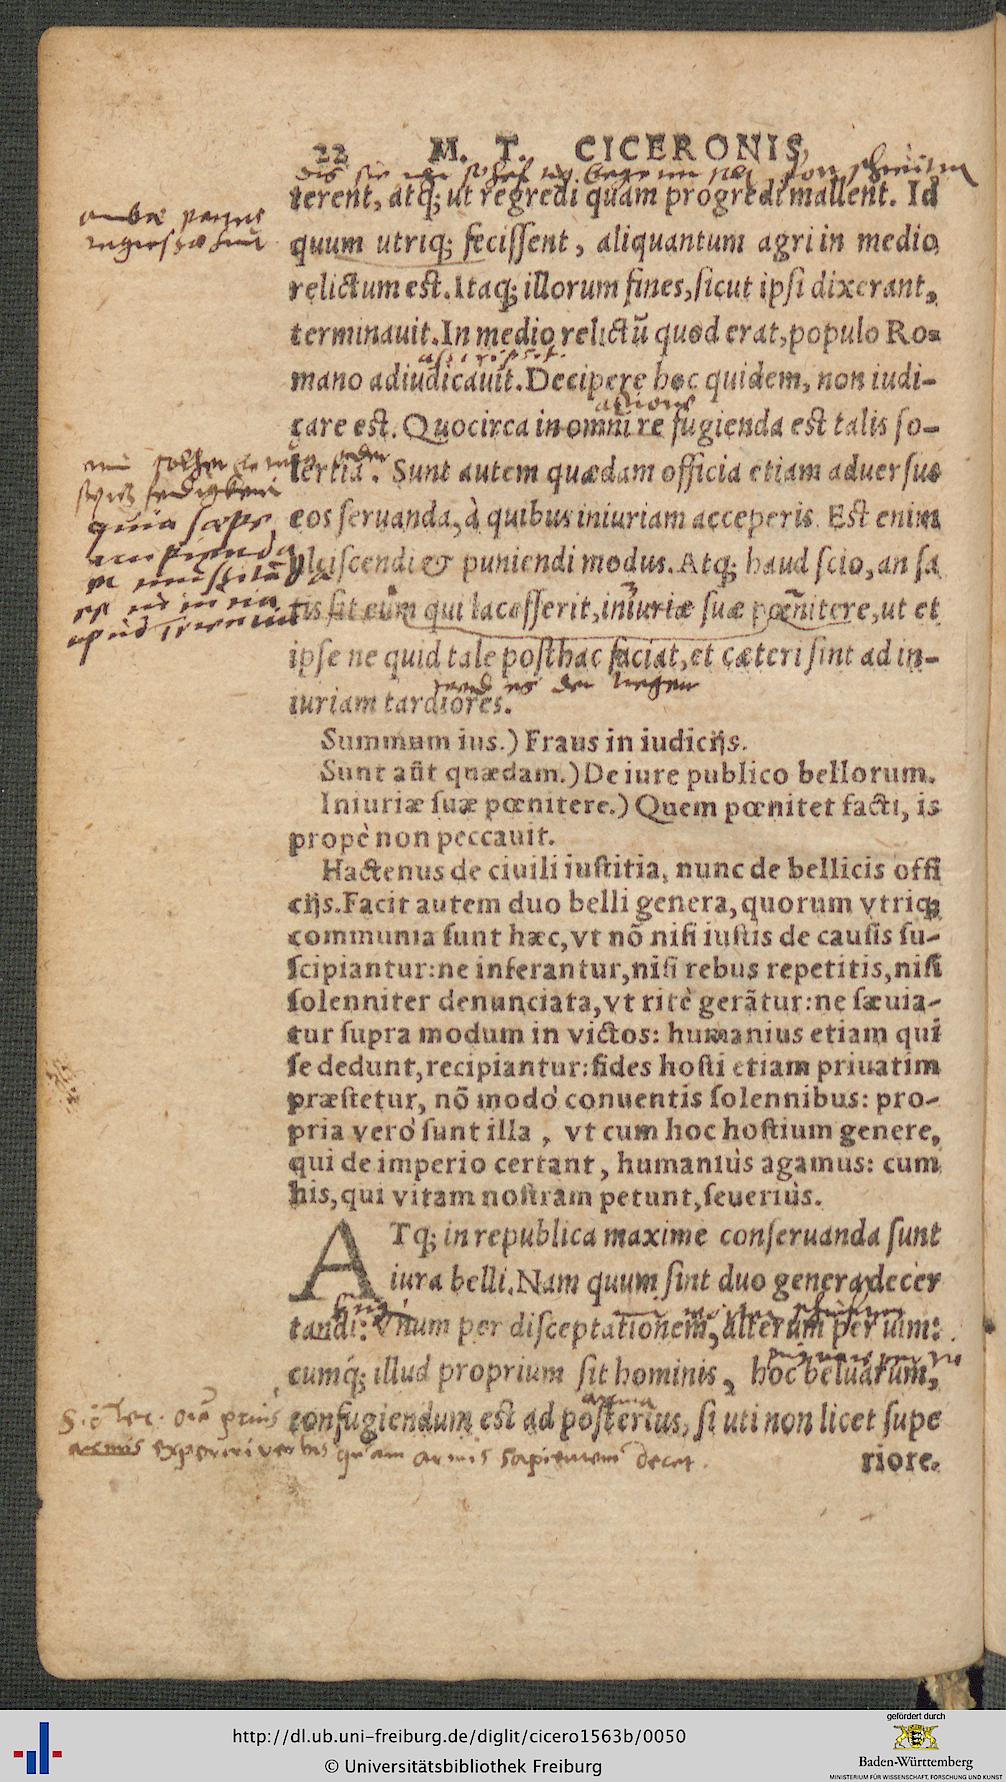 22 M. T. CICERONIS,
terent, atq; ut regredi quàm progredi mallent. Id
ambæ partes
quum utriq; fecissent, aliquantum agri in medio
relictum est. Itaq; illorum fines, sicut ipsi dixerant,
terminauit. In medio relictū quod erat, populo Ro=
mano adiudicauit. Decipere hoc quidem, non iudi-
care est. Quocirca in omni re fugienda est talis so-
lertia. Sunt autem quædam officia etiam aduersus
quia sæpe
eos seruanda, à quibus iniuriam acceperis. Est enim
ulciscendi & puniendi modus. Atq; haud scio, an sa
tis sit eum qui lacesserit, iniuriæ suæ pœnitere, ut et
ipse ne quid tale posthac faciat, et cæteri sint ad in-
iuriam tardiores.
Summum ius.) Fraus in iudicijs.
Sunt aūt quædam.) De iure publico bellorum.
Iniuriæ suæ pœnitere.) Quem pœnitet facti, is
propè non peccauit.
Hactenus de ciuili iustitia, nunc de bellicis offi
cijs. Facit autem duo belli genera, quorum vtriq;
communia sunt hæc, vt nō nisi iustis de causis su-
scipiantur: ne inferantur, nisi rebus repetitis, nisi
solenniter denunciata, vt ritè gerātur: ne sæuia-
tur supra modum in victos: humanius etiam qui
se dedunt, recipiantur: fides hosti etiam priuatim
præstetur, nō modò conuentis solennibus: pro-
pria verò sunt illa, vt cum hoc hostium genere,
qui de imperio certant, humaniùs agamus: cum
his, qui vitam nostram petunt, seueriùs.
ATq; in republica maxime conseruanda sunt
iura belli. Nam quum sint duo genera decer
tandi: Vnum per disceptationem, alterum per uim:
cumq́; illud proprium sit hominis, hoc beluarum,
arma
confugiendum est ad posterius, si uti non licet supe
armis experiri verbis quam armis sapientem decet.
riore.
http://dl.ub.uni-freiburg.de/diglit/cicero1563b/0050
© Universitätsbibliothek Freiburg
gefördert durch
Baden-Württemberg
MINISTERIUM FÜR WISSENSCHAFT, FORSCHUNG UND KUNST